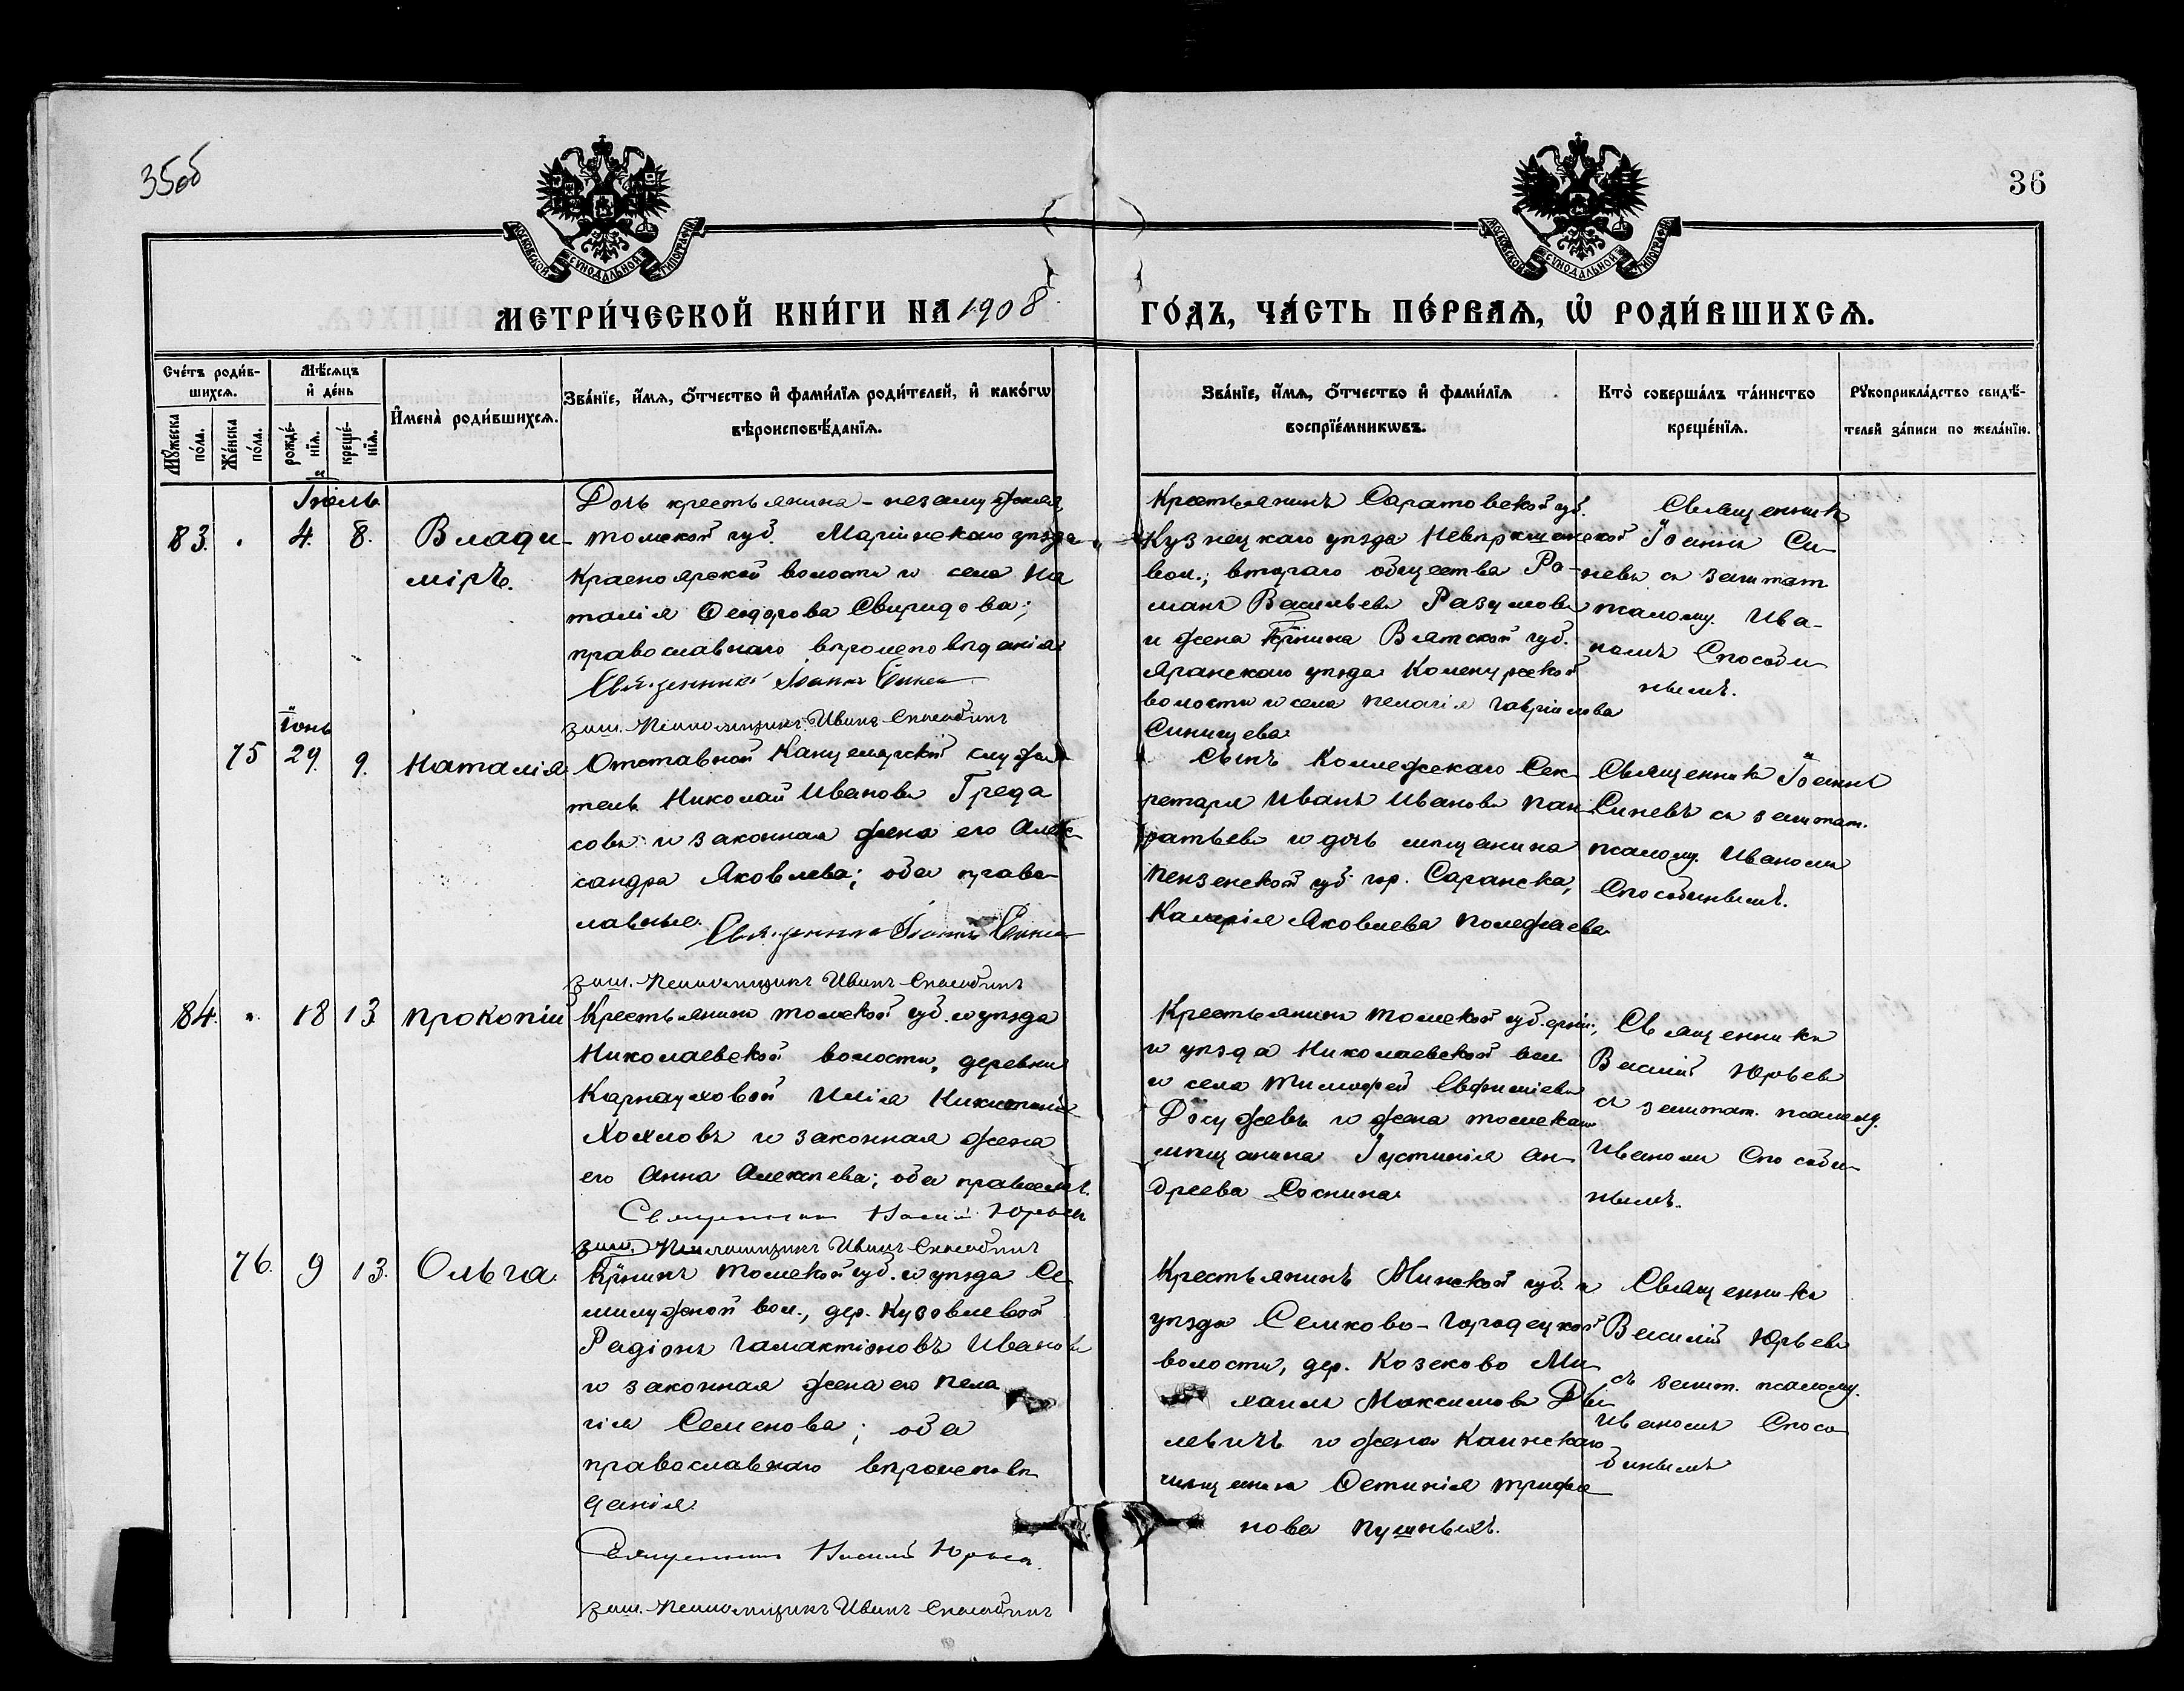 35об
36
МОСКОВСКОЙ СѴНОДАЛЬНОЙ ТИПОГРАФІИ
МОСКОВСКОЙ СѴНОДАЛЬНОЙ ТИПОГРАФІИ
МЕТРИ́ЧЕСКОЙ КНИ́ГИ НА 1908
ГО́ДЪ, ЧА́СТЬ ПЕ́РВАѦ, Ѡ РОДИ́ВШИХСѦ.
Сче́тъ роди́в-
шихсѧ.
Мꙋжеска по́ла.
Же́нска по́ла.
Мѣ́сѧцъ
и҆ де́нь
рожде́-нїѧ.
креще́-нїѧ.
И҆мена̀ роди́вшихсѧ.
Зва́нїе, и҆́мѧ, о҆́тчество и҆ фами́лїѧ роди́телей, и҆ како́гѡ
вѣроисповѣ́данїѧ.
Зва́нїе, и҆́мѧ, о҆́тчество и҆ фами́лїѧ
воспрїе́мникѡвъ.
Кто̀ соверша́лъ та́инство
креще́нїѧ.
Рꙋкоприкла́дство свидѣ́-
телей за́писи по жела́нїю.
Іюль
83. 4. 8. Влади-
міръ.
Дочь крестьянина - незамужняя,
Томской губ. Маріинскаго уѣзда
Красноярской волости и села На
талія Ѳеодорова Свиридова;
православнаго вѣроисповѣданія
Священникъ Іоаннъ Синевъ
заш. Псаломщикъ Иванъ Способинъ
Крестьянинъ Саратовской губ.
Кузнецкаго уѣзда Невѣркинской
вол., втораго общества Ро-
манъ Васильевъ Разумовъ
и жена Кр-нина Вятской губ.
Яранскаго уѣзда
волости и села Пелагія Гавріилова
Синицева
Священникъ
Іоаннъ Си-
невъ съ заштат
псаломщ. Ива-
номъ Способи-
нымъ.
Іюнь
75 29. 9. Наталія
Отставной Канцелярскій служи
тель Николай Ивановъ Греда
совъ и законная жена его Алек-
сандра Яковлева; оба право-
славные.
Священникъ Іоаннъ Синевъ
заш. Псаломщикъ Иванъ Способинъ
Сынъ Коллежскаго Сек-
ретаря Иванъ Ивановъ Пан-
кратьевъ и дочь мѣщанина
Пензенской губ. гор. Саранска,
Калерія Яковлева Полежаева
Священникъ Іоаннъ
Синевъ съ заштат.
псаломщ. Иваномъ
Способинымъ.
84. 18 13 Прокопій
Крестьянинъ Томской губ. и уѣзда
Николаевской волости, деревни
Карнауховой Илія Никитинъ
Хохловъ и законная жена
его Анна Алексѣева; оба правосл.
Священникъ Василій Юрьевъ
заш. Псаломщикъ Иванъ Способинъ
Крестьянинъ Томской губ.
и уѣзда Николаевской вол.
и села Тимофей Евфиміевъ
Досужевъ и жена томскаго
мѣщанина Іустинія Ан-
дреева Соснина
Священникъ
Василій Юрьевъ
съ заштат. псаломщ.
Иваномъ Способи-
нымъ.
76. 9 13. Ольга.
Кр-нинъ Томской губ. и уѣзда Се-
милужной вол., дер. Кузовлевой
Радіонъ Галактіоновъ Ивановъ
и законная жена его Пела
гія Семенова; оба
православнаго вѣроисповѣ-
данія
Священникъ Василій Юрьевъ.
заш. Псаломщикъ Иванъ Способинъ
Крестьянинъ Минской губ. и
уѣзда Семково-Городецкой
волости, дер. Козеково Ми-
хаилъ Максимовъ
и жена Каинскаго
мѣщанина Устинія Трифо-
нова Пушныхъ.
Священникъ
Василій Юрьевъ
съ зашт. псаломщ.
Иваномъ Спосо-
бинымъ